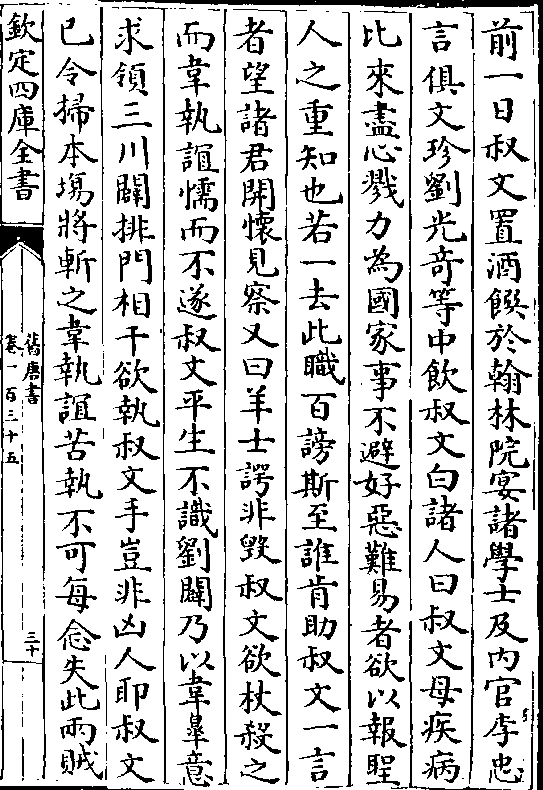 前一日叔文置酒饌於翰林院宴諸學士及内官李忠
言俱文珍劉光竒等中飲叔文白諸人曰叔文母疾病
比來盡心戮力為國家事不避好惡難易者欲以報聖
人之重知也若一去此職百謗斯至誰肯助叔文一言
者望諸君開懷見察又曰羊士諤非毁叔文欲杖殺之
而韋執誼懦而不遂叔文平生不識劉闢乃以韋臯意
求領三川闢排門相干欲執叔文手豈非凶人耶叔文
已令掃本塲將斬之韋執誼苦執不可每念失此兩賊
欽定四庫全書
舊唐書
卷一百三十五
三十